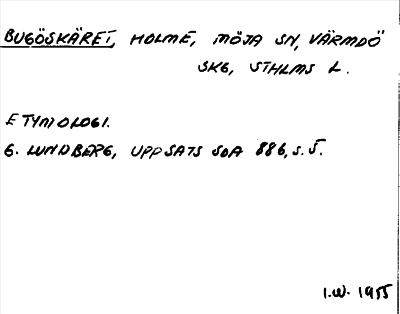 BUGÖSKÄRET, HOLME, MÖJA SN, VÄRMDÖ
SKG, STHLMS L.
ETYMOLOGI.
G. LUNDBERG, UPPSATS SOA 886, S. 5.
I.W. 1955